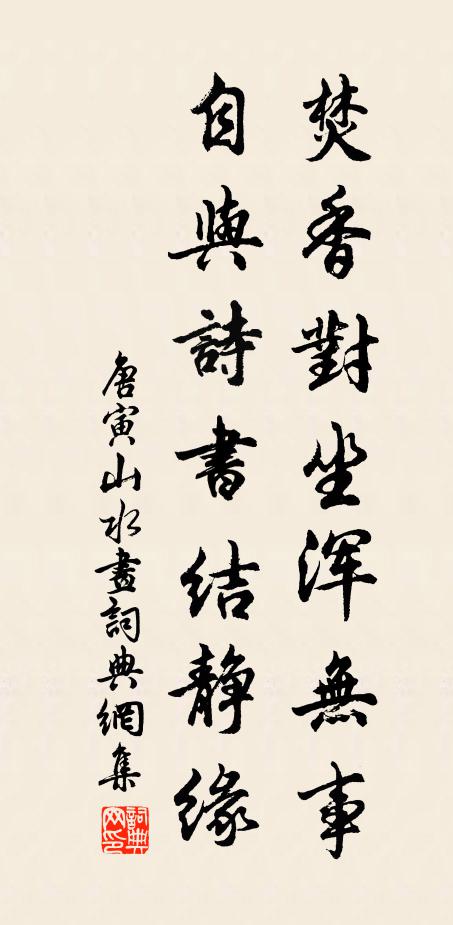 焚香對坐浑無事
自與詩書结静緣
唐寅山水畫詞典網集
詞典
网印